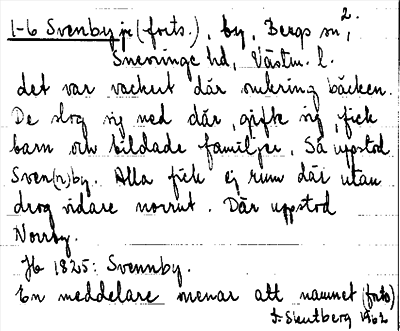 1-6 Svenby je (forts.), by, Bergs sn, 2.
Snevringe hd, Västm. l.
det var vackert där omkring bäcken.
De slog sig ned där, gifte sig, fick
barn och bildade familjer. Så uppstod
Sven(n)by. Alla fick ej rum där utan
drog vidare norrut. Där uppstod
Norrby.
Jb 1825: Svennby.
En meddelare menar att namnet (forts)
1962